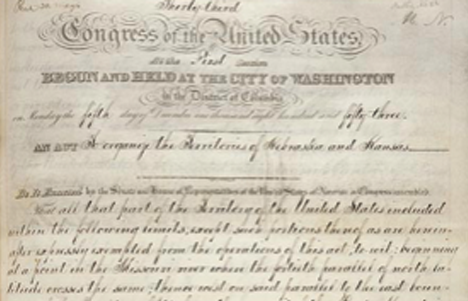 Thirty-third
Congress of the United States;
At the First Session
BEGUN AND HELD AT THE CITY OF WASHINGTON
in the District of Columbia
on Monday the fifth day of December one thousand eight hundred and fifty-three.
AN ACT To organize the Territories of Nebraska and Kansas.
Be It Enacted by the Senate and House of Representatives of the United States of America in Congress assembled,
That all that part of the Territory of the United States included
within the following limits, except such portions thereof as are herein-
after expressly exempted from the operations of this act, to wit: beginning
at a point in the Missouri river where the fortieth parallel of north la-
titude crosses the same; thence west on said parallel to the east boun-